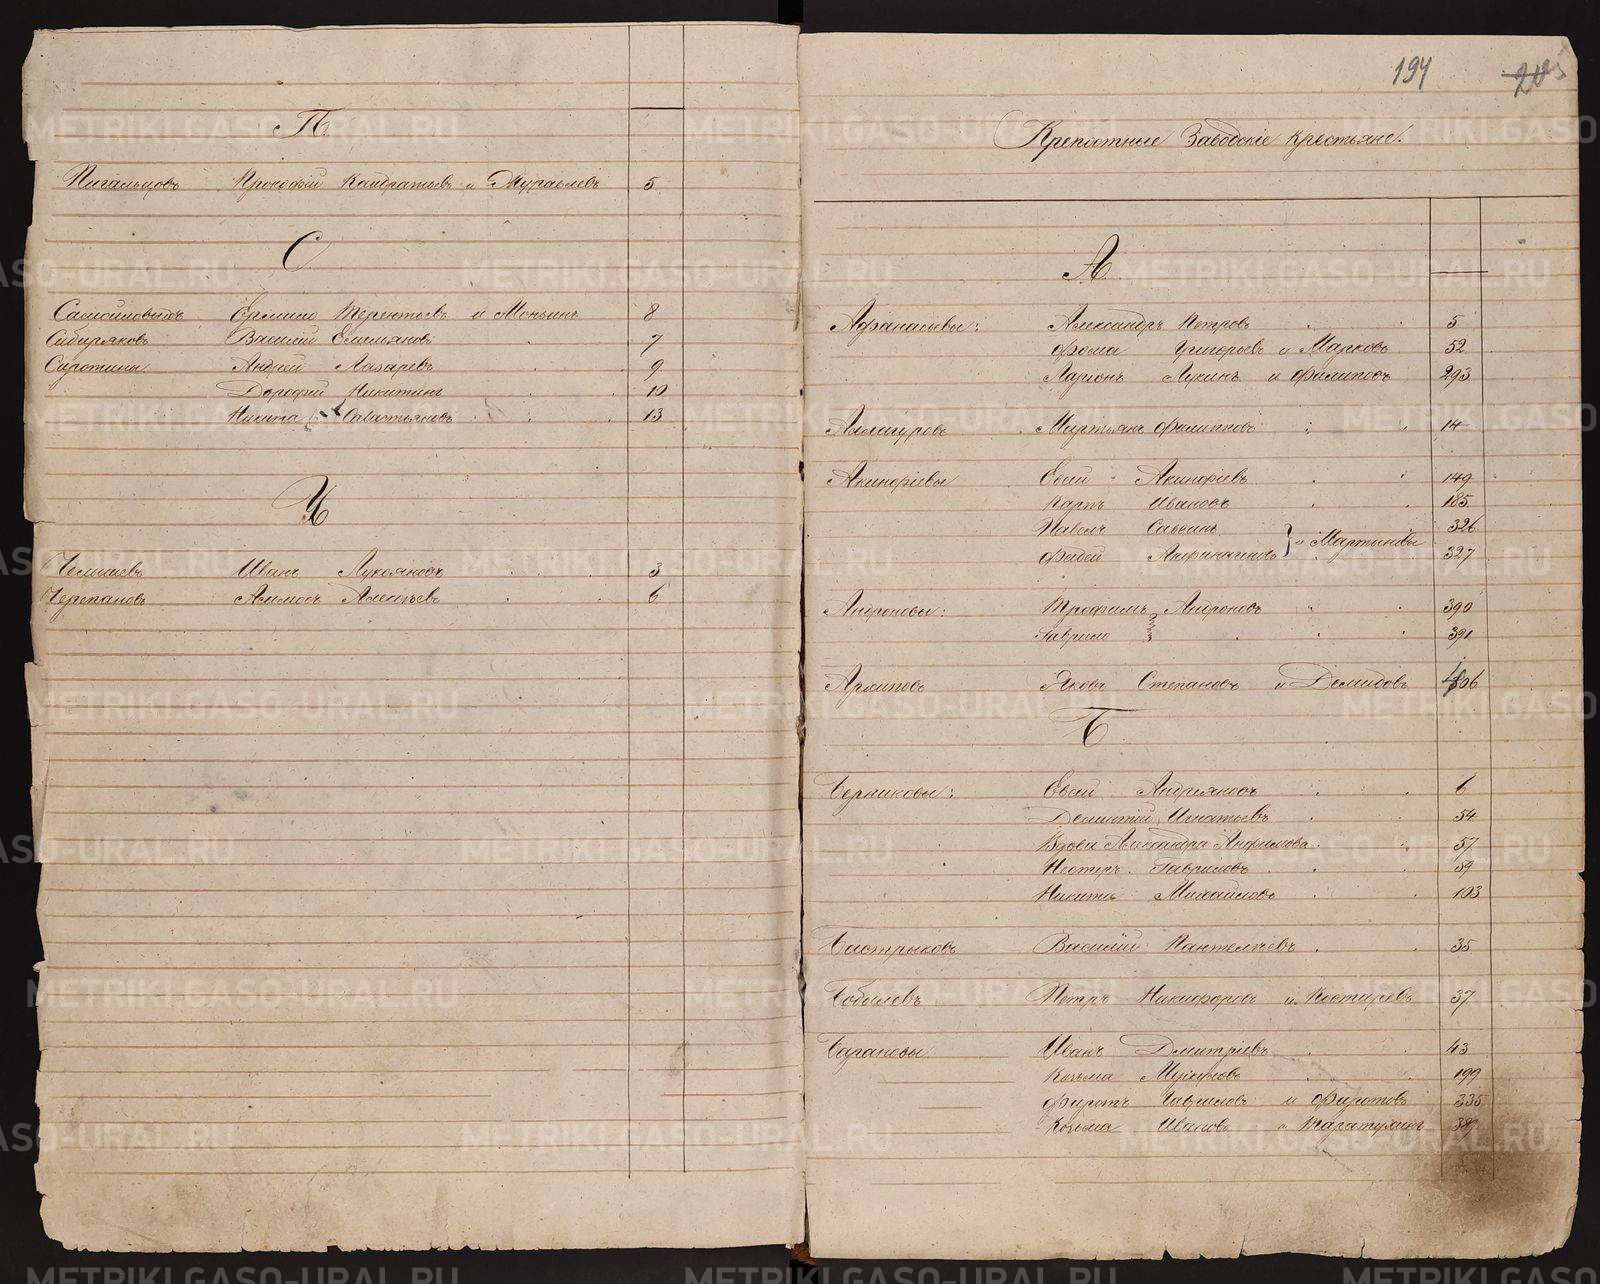 П.
Пигальцовъ Прокофiй Кандратьевъ и Журавлевъ 5
С
Самойловыхъ Ермило Терентьевъ и Моньинъ 8
Сибиряковъ Василiй Емельяновъ 7
Сиротины Андрей Лазаревъ 9
Дорофей Никитинъ 10
Никита Савватьяновъ 13
Ч
Челышевъ Иванъ Лукояновъ 3
Черепановъ Алексѣевъ 6
194
Крепостные Заводскiе крестьяне.
А
Афанасьевы: Александръ Петровъ 5
Фома Григорьевъ и Марковъ 52
Ларiонъ Лукинъ и Филиповъ 293
Мартьянъ Филиповъ 14
Акинфiевы Евсей Акинфiевъ 149
Карпъ Ивановъ 185
Павелъ Саввинъ 326
Фадей } и Мартыновы 327
Андроновы: Трофимъ Андроновъ 390
Гаврило 391
Архиповъ Яковъ Степановъ и Демидовъ 406
Б
Берниковы: Евсей Андреяновъ 6
Дементiй Игнатьевъ 54
Вдова Александра Анфимова 57
Несторъ Гавриловъ 59
Никита Михайловъ 103
Бастрыковъ Василiй Пантелѣевъ 35
Бобылевъ Петръ Никифоровъ и Костаревъ 37
Барановы Иванъ Дмитрiевъ 43
Козьма 199
Фирстъ Гавриловъ и Фирстовъ 335
Козьма Ивановъ и